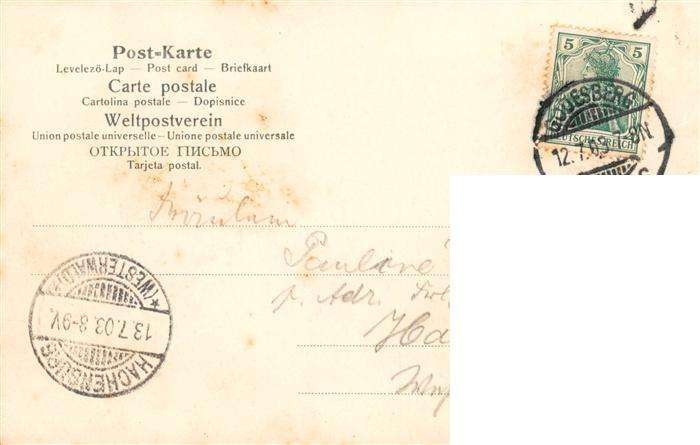 Post-Karte
Levelező-Lap — Post card — Briefkaart
Carte postale
Cartolina postale — Dopisnice
Weltpostverein
Union postale universelle — Unione postale universale
ОТКРЫТОЕ ПИСЬМО
Tarjeta postal.
5 5
GODESBERG
12.7.03
DEUTSCHES REICH
Fräulein
Pauline
p. Adr.
(WESTERWALD)
13.7.03. 8-9V.
HACHENBURG